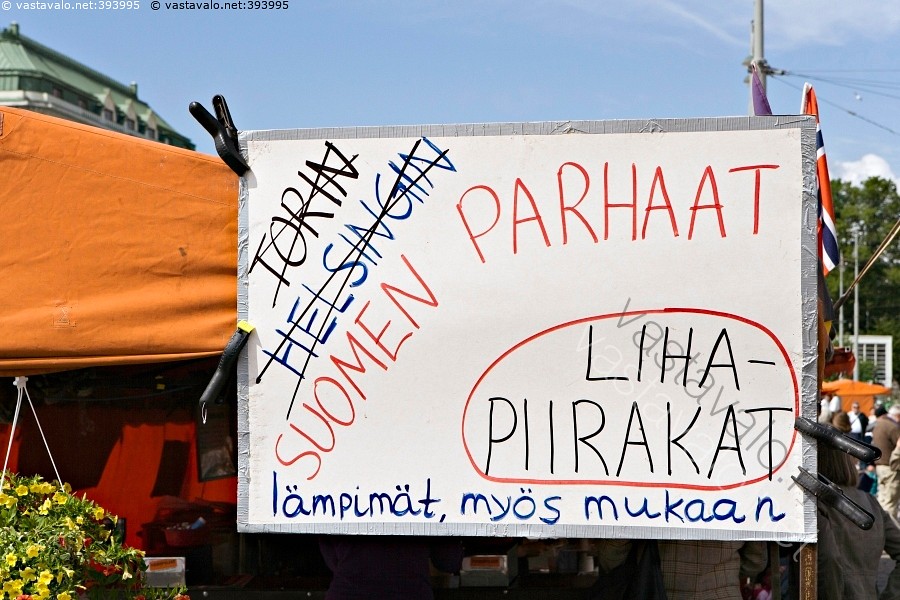 © vastavalo.net:393995 © vastavalo.net:393995
TORIN
HELSINGIN
SUOMEN
PARHAAT
LIHA-
PIIRAKAT
lämpimät, myös mukaan
vastavalo.
vastavalo